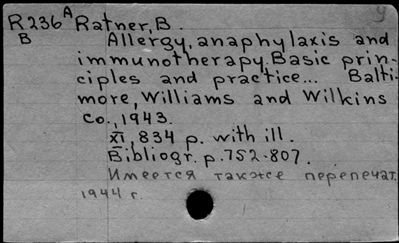 R236 A Ratner, B.
B Allergy, anaphylaxis and
immunotherapy. Basic prin-
ciples and practice... Balti-
more, Williams and Wilkins
Co., 1943.
XI, 834 p. with ill.
Bibliogr. p. 752-807.
Имеется также перепечат.
1944 г.